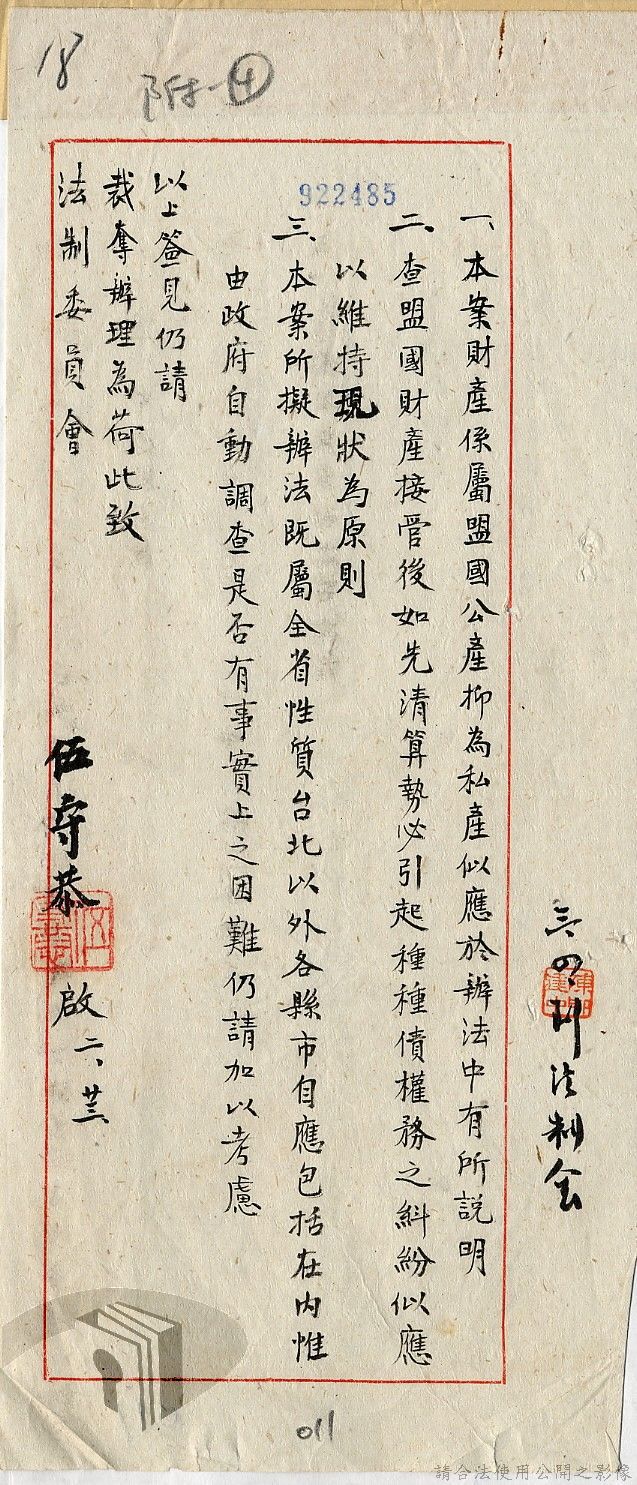 18
附一④
922485
一、本案財產係屬盟國公產抑為私產似應於辦法中有所說明
二、查盟國財產接管後如先清算勢必引起種種債權務之糾紛似應
以維持現狀為原則
三、本案所擬辦法既屬全省性質台北以外各縣市自應包括在內惟
由政府自動調查是否有事實上之困難仍請加以考慮
以上簽見仍請
裁奪辦理為荷此致
法制委員會
伍守恭
啟 二、廿三
法制会
011
請合法使用公開之影像